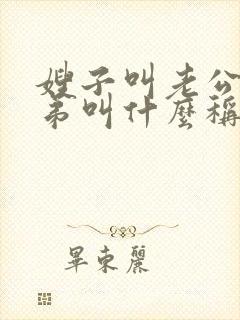 嫂子叫老公
弟叫什麼稱
畢東麗